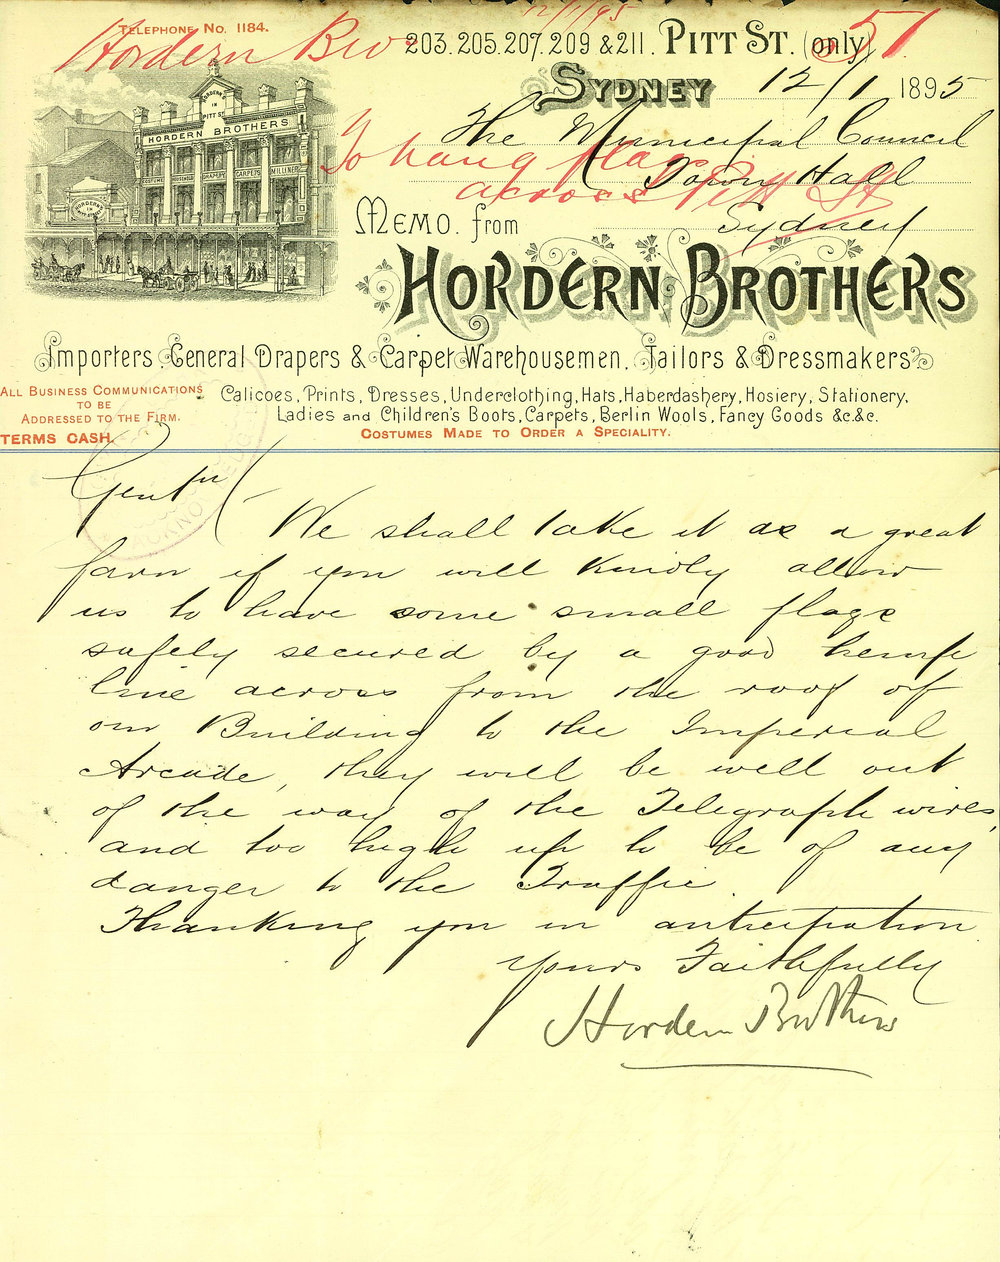 12/1/95
TELEPHONE No. 1184.
Hordern Bros
203. 205. 207. 209 & 211. PITT ST. (only)
51
SYDNEY 12/1 1895
The Municipal Council
To hang flags
Town Hall
across Pitt St
Sydney
HORDERN
IN
PITT ST
HORDERN BROTHERS
MEMO. from
HORDERN BROTHERS
Importers, General Drapers & Carpet Warehousemen, Tailors & Dressmakers.
ALL BUSINESS COMMUNICATIONS
TO BE
ADDRESSED TO THE FIRM.
TERMS CASH.
Calicoes, Prints, Dresses, Underclothing, Hats, Haberdashery, Hosiery, Stationery,
Ladies and Children's Boots, Carpets, Berlin Wools, Fancy Goods &c.&c.
COSTUMES MADE TO ORDER A SPECIALITY.
Gentm
We shall take it as a great
favor if you will kindly allow
us to have some small flags
safely secured by a good hemp
line across from the roof of
our Building to the Imperial
Arcade, they will be well out
of the way of the Telegraph wires,
and too high up to be of any
danger to the Traffic.
Thanking you in anticipation
Yours Faithfully
Hordern Brothers